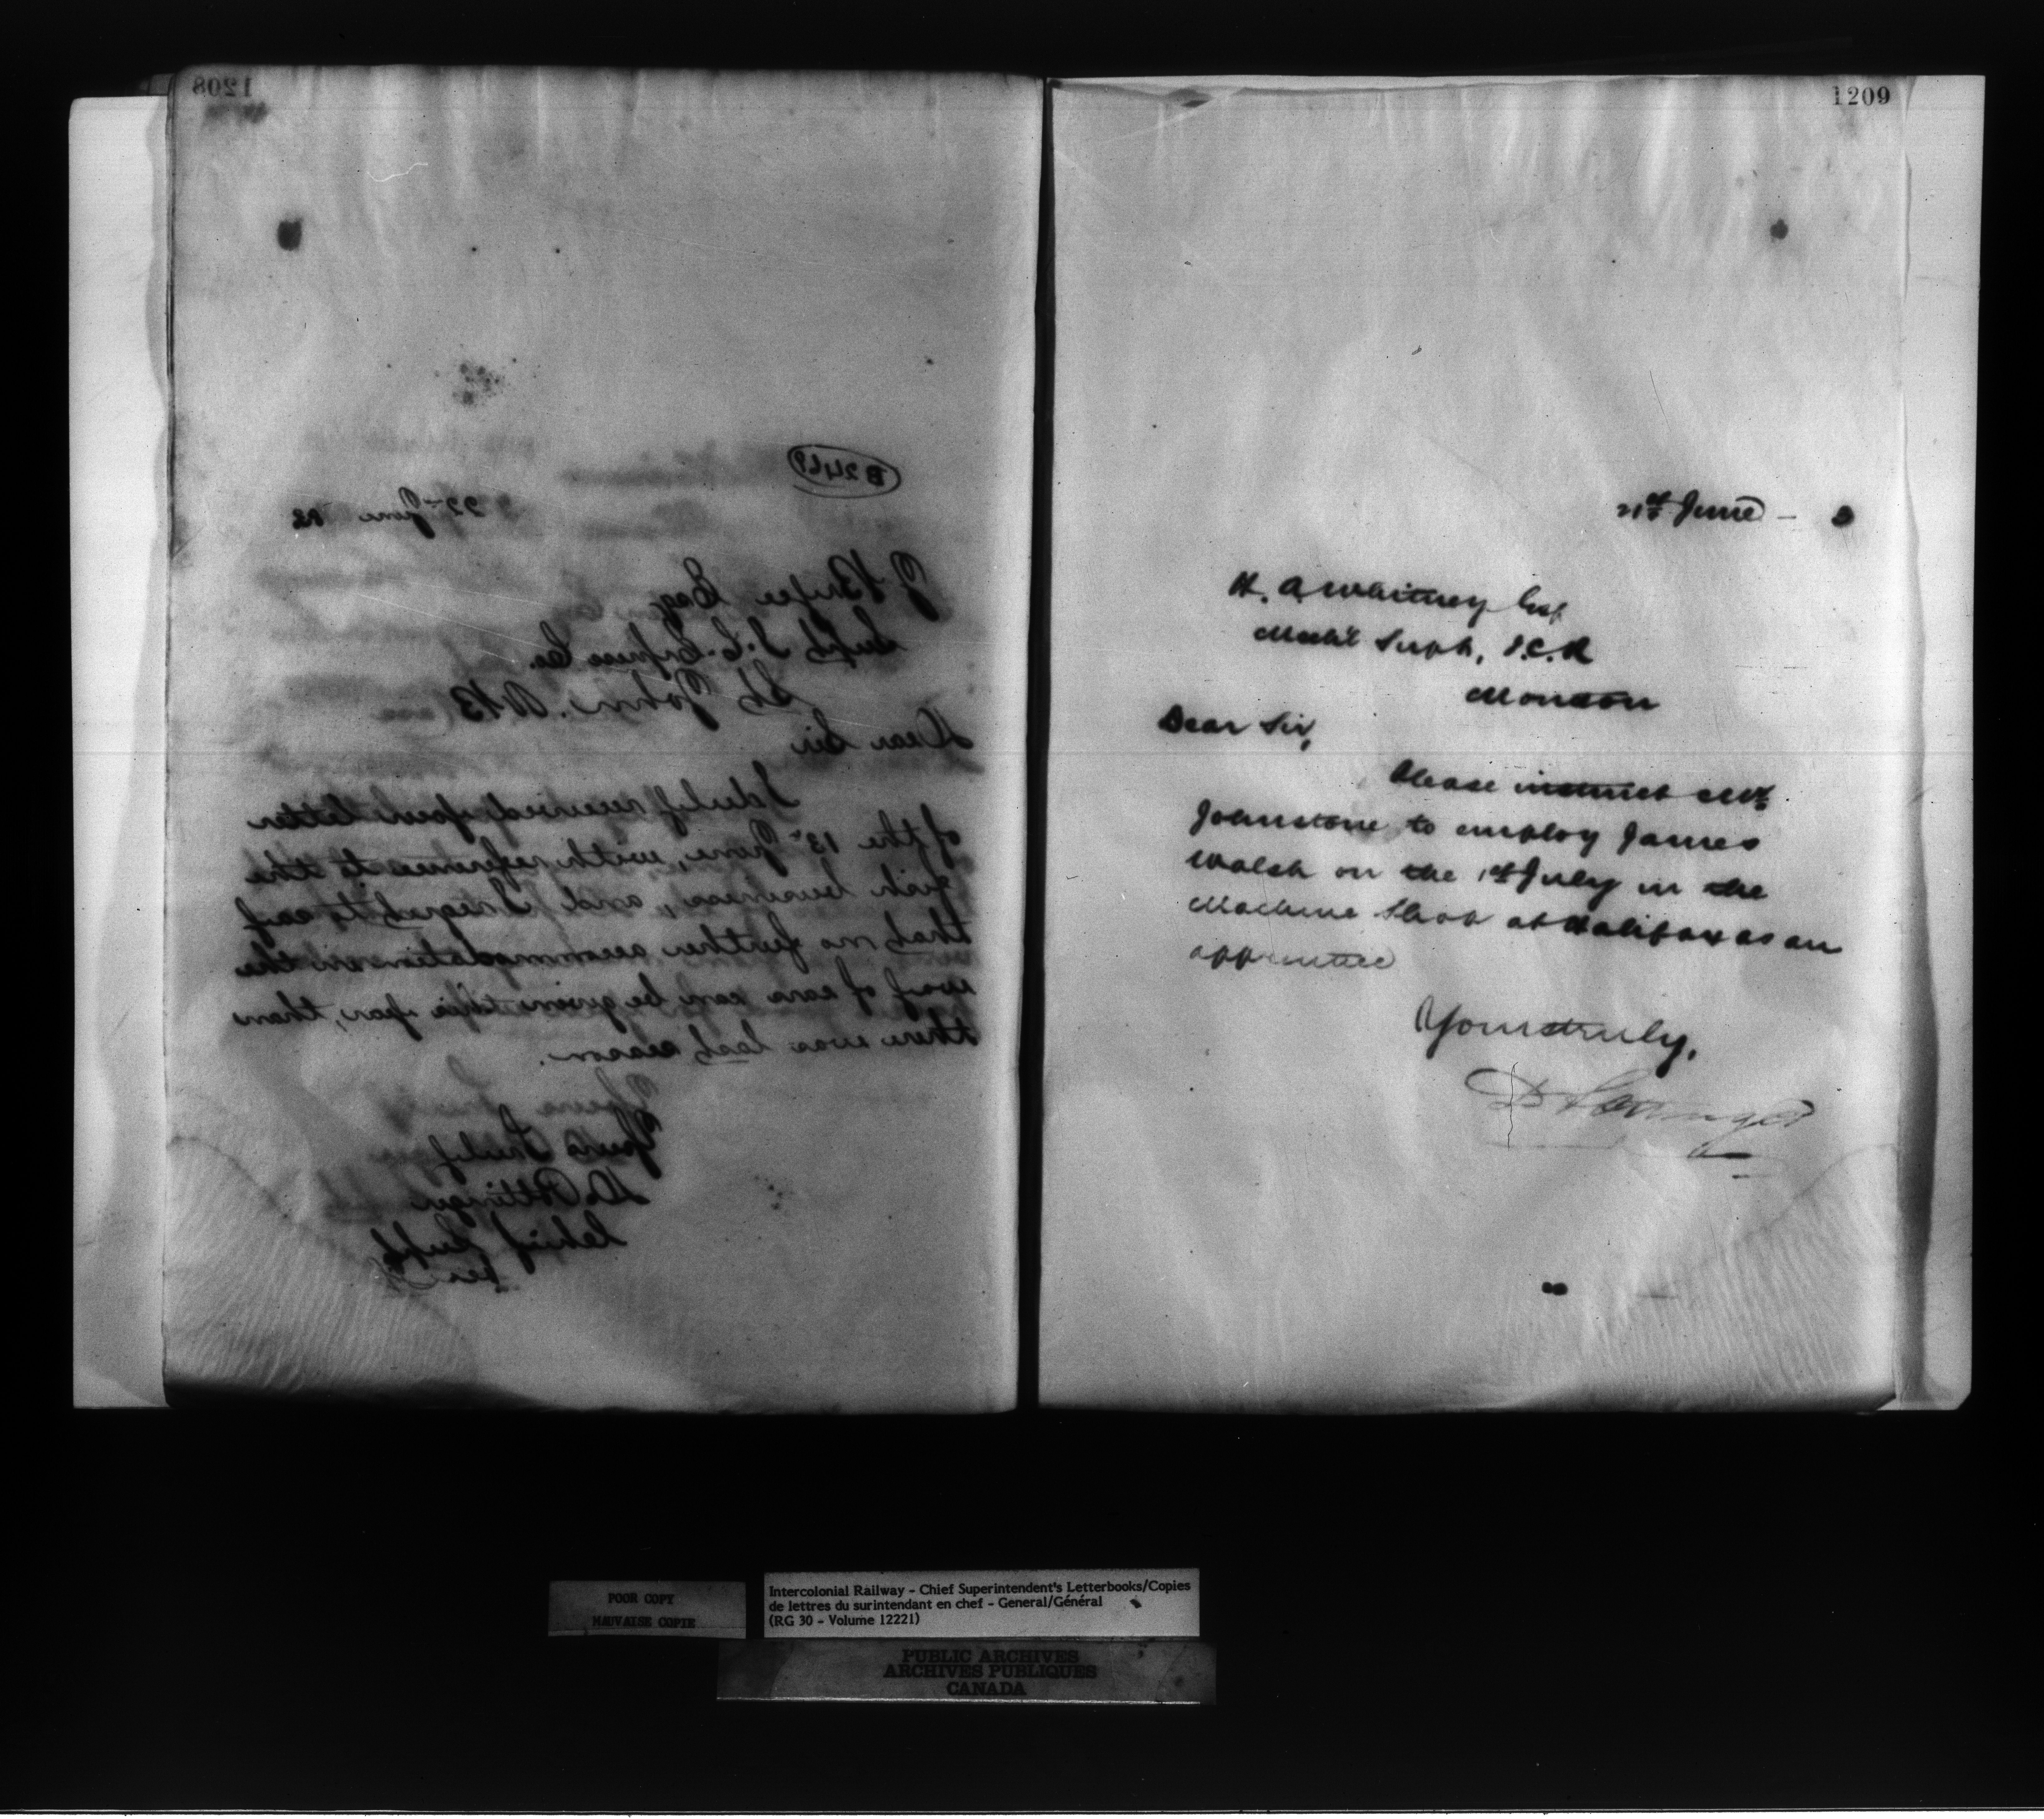 1208
B 2469
22nd June 82
J. Bryce Esq
Supt I. C. Express Co.
St John. N B
Dear Sir
I duly received your letter
of the 13th June, with reference to the
fish business, and I regret to say
that no further accommodation in the
way of cars can be given this year, than
there was last season.
Yours Truly
D. Pottinger
Chief Supt
per
1209
21st June - 2
H. A Whitney Esq
Mech'l Supt, I.C.R
Moncton
Dear Sir,
Please instruct Mr
Johnstone to employ James
Walsh on the 1st July in the
Machine Shop at Halifax as an
apprentice
Yours truly,
D Pottinger
POOR COPY
MAUVAISE COPIE
Intercolonial Railway - Chief Superintendent's Letterbooks/Copies
de lettres du surintendant en chef - General/Général
(RG 30 - Volume 12221)
PUBLIC ARCHIVES
ARCHIVES PUBLIQUES
CANADA